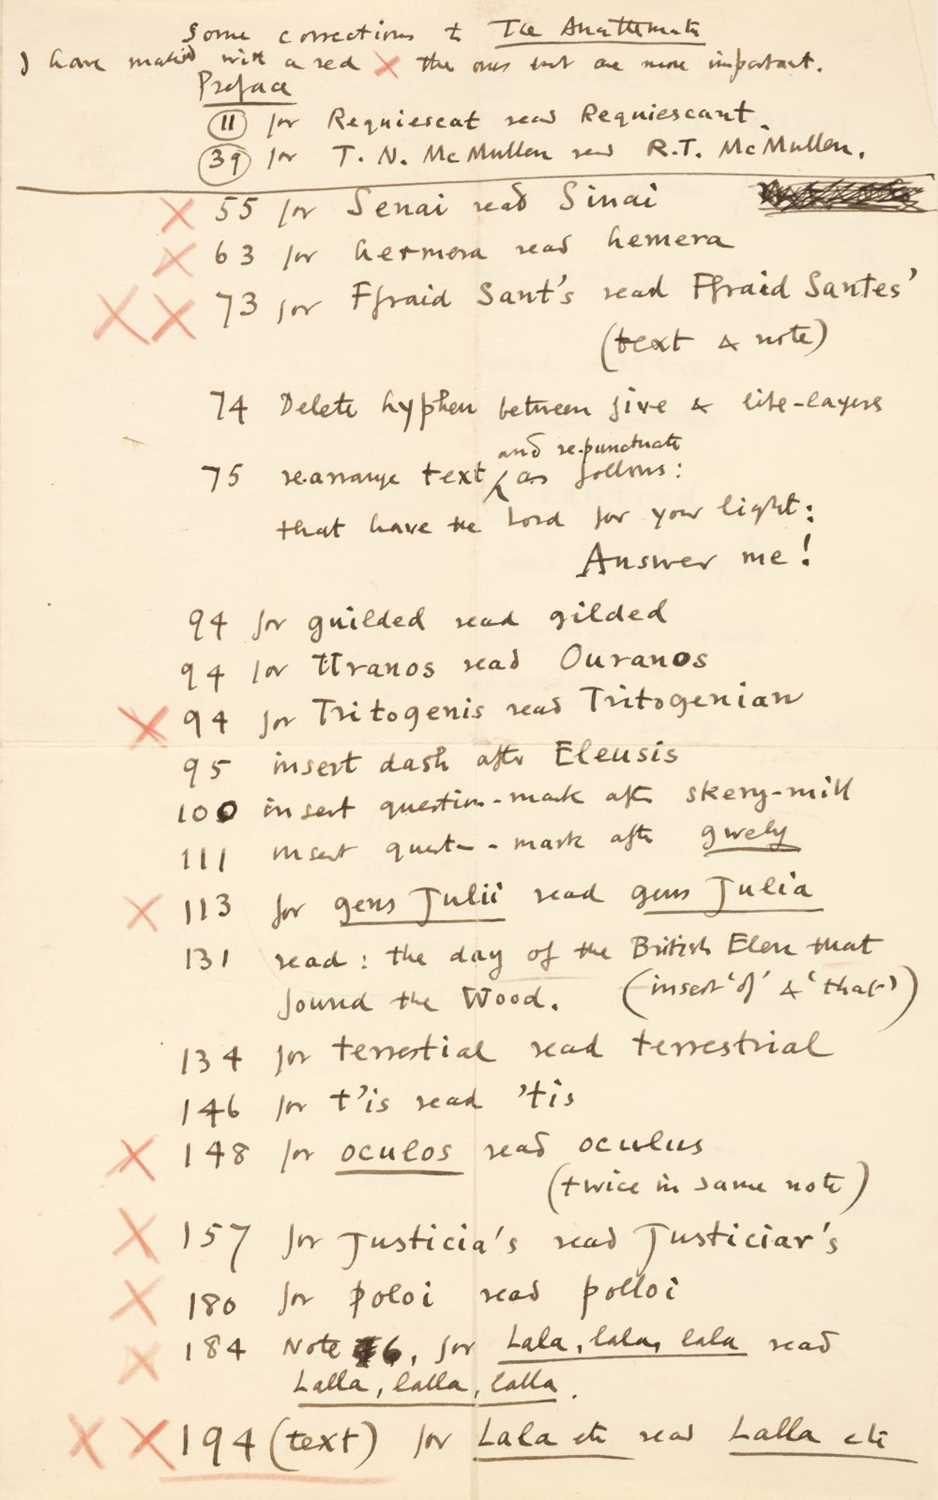 Some corrections to The Anathemata
I have marked with a red × the ones that are more important.
Preface
11 for Requiescat read Requiescant.
39 for T. N. McMullen read R.T. McMullen.
× 55 for Senai read Sinai
× 63 for hermera read hemera
× × 73 for Ffraid Sant's read Ffraid Santes'
(text & note)
74 Delete hyphen between five & life-layers
and re-punctuate
75 rearrange text as follows:
that have the Lord for your light:
Answer me!
94 for guilded read gilded
94 for Uranos read Ouranos
× 94 for Tritogenis read Tritogenian
95 insert dash after Eleusis
100 insert question-mark after skerry-mill
111 insert quest - mark after gwely
× 113 for gens Julii read gens Julia
131 read: the day of the British Elen that
found the Wood. (insert 'of' & 'that')
134 for terrestial read terrestrial
146 for t'is read 'tis
× 148 for oculos read oculus
(twice in same note)
× 157 for Justicia's read Justiciar's
× 180 for poloi read polloi
× 184 Note 6, for Lala, lala, lala read
Lalla, lalla, lalla.
× × 194 (text) for Lala etc read Lalla etc